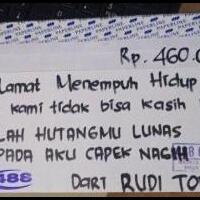 PAPERLINE PAPERLINE PAPERLINE
Rp. 460.0
lamat Menempuh Hidup
kami tidak bisa kasih
LAH HUTANGMU LUNAS
PADA AKU CAPEK NAGIH
488 DARI RUDI TO